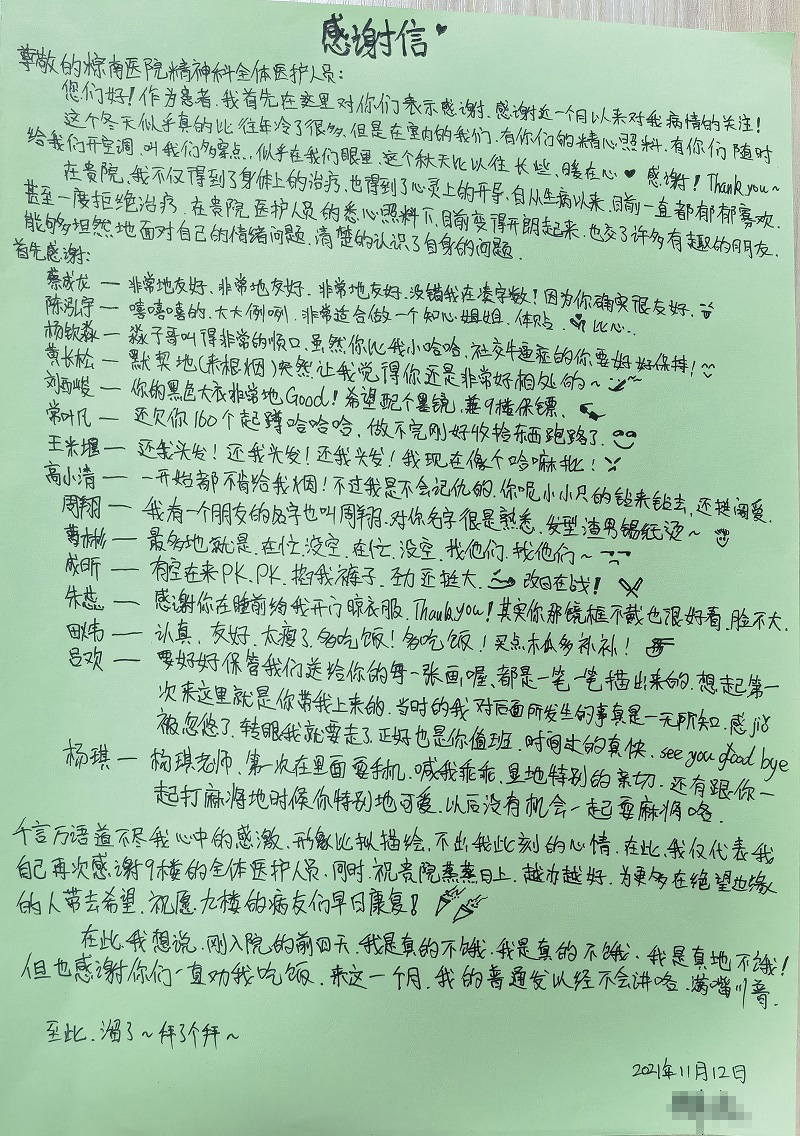 感谢信
尊敬的棕南医院精神科全体医护人员:
您们好!作为患者,我首先在这里对你们表示感谢.感谢近一个月以来对我病情的关注!
这个冬天似乎真的比往年冷了很多.但是在室内的我们.有你们的精心照料.有你们随时
给我们开空调.叫我们多穿点.似乎在我们眼里.这个秋天比以往长些、暖在心♥感谢!Thank you~
在贵院、我不仅得到了身体上的治疗,也得到了心灵上的开导.自从生病以来、目前一直都郁郁寡欢.
甚至一度拒绝治疗.在贵院医护人员的悉心照料下、目前变得开朗起来、也交了许多有趣的朋友.
能够坦然地面对自己的情绪问题.清楚的认识了自身的问题.
首先感谢:
蔡成龙 — 非常地友好、非常地友好、非常地友好.没错我在凑字数!因为你确实很友好.
陈泓宇 — 嘻嘻嘻的、大大咧咧、非常适合做一个知心姐姐、体贴、比心..
杨钦淼 — 淼子哥叫得非常的顺口.虽然你比我小哈哈、社交牛逼症的你要好好保持!
黄长松 — 默契地(来根烟)突然让我觉得你还是非常好相处的~
刘西峻 — 你的黑色大衣非常地Good!希望配个墨镜、兼9楼保镖、
常叶凡 — 还欠你160个起蹲哈哈哈、做不完刚好收拾东西跑路了.
王米堰 — 还我头发!还我头发!还我头发!我现在像个哈麻批!
高小清 — 一开始都不肯给我烟!不过我是不会记仇的.你呢小小只的钻来钻去,还挺阔爱.
周翔 — 我有一个朋友的名字也叫周翔.对你名字很是熟悉、发型渣男锡纸烫~
曹彬彬 — 最多地就是.在忙、没空.在忙、没空、找他们、找他们~
成昕 — 有空在来PK、PK、掐我裤子、劲还挺大、改日在战!
朱蕊 — 感谢你在睡前给我开门晾衣服、Thank you!其实你那镜框不戴也很好看、脸不大.
田伟 — 认真、友好、太瘦了、多吃饭!多吃饭!买点木瓜多补补!
吕欢 — 要好好保管我们送给你的每一张画喔、都是一笔一笔描出来的.想起第一
次来这里就是你带我上来的、当时的我对后面所发生的事真是一无所知.感jio
被忽悠了.转眼我就要走了.正好也是你值班、时间过的真快.see you good bye
杨琪 — 杨琪老师、第一次在里面耍手机、喊我乖乖、显地特别的亲切.还有跟你一
起打麻将地时候你特别地可爱.以后没有机会一起耍麻将咯.
千言万语道不尽我心中的感激、形像比拟描绘、不出我此刻的心情.在此、我仅代表我
自己再次感谢9楼的全体医护人员.同时、祝贵院蒸蒸日上、越办越好.为更多在绝望边缘
的人带去希望.祝愿.九楼的病友们早日康复!
在此、我想说、刚入院的前四天、我是真的不饿、我是真的不饿、我是真地不饿!
但也感谢你们一直劝我吃饭、来这一个月、我的普通发以经不会讲咯、满嘴川音.
至此、溜了~拜了个拜~
2021年11月12日